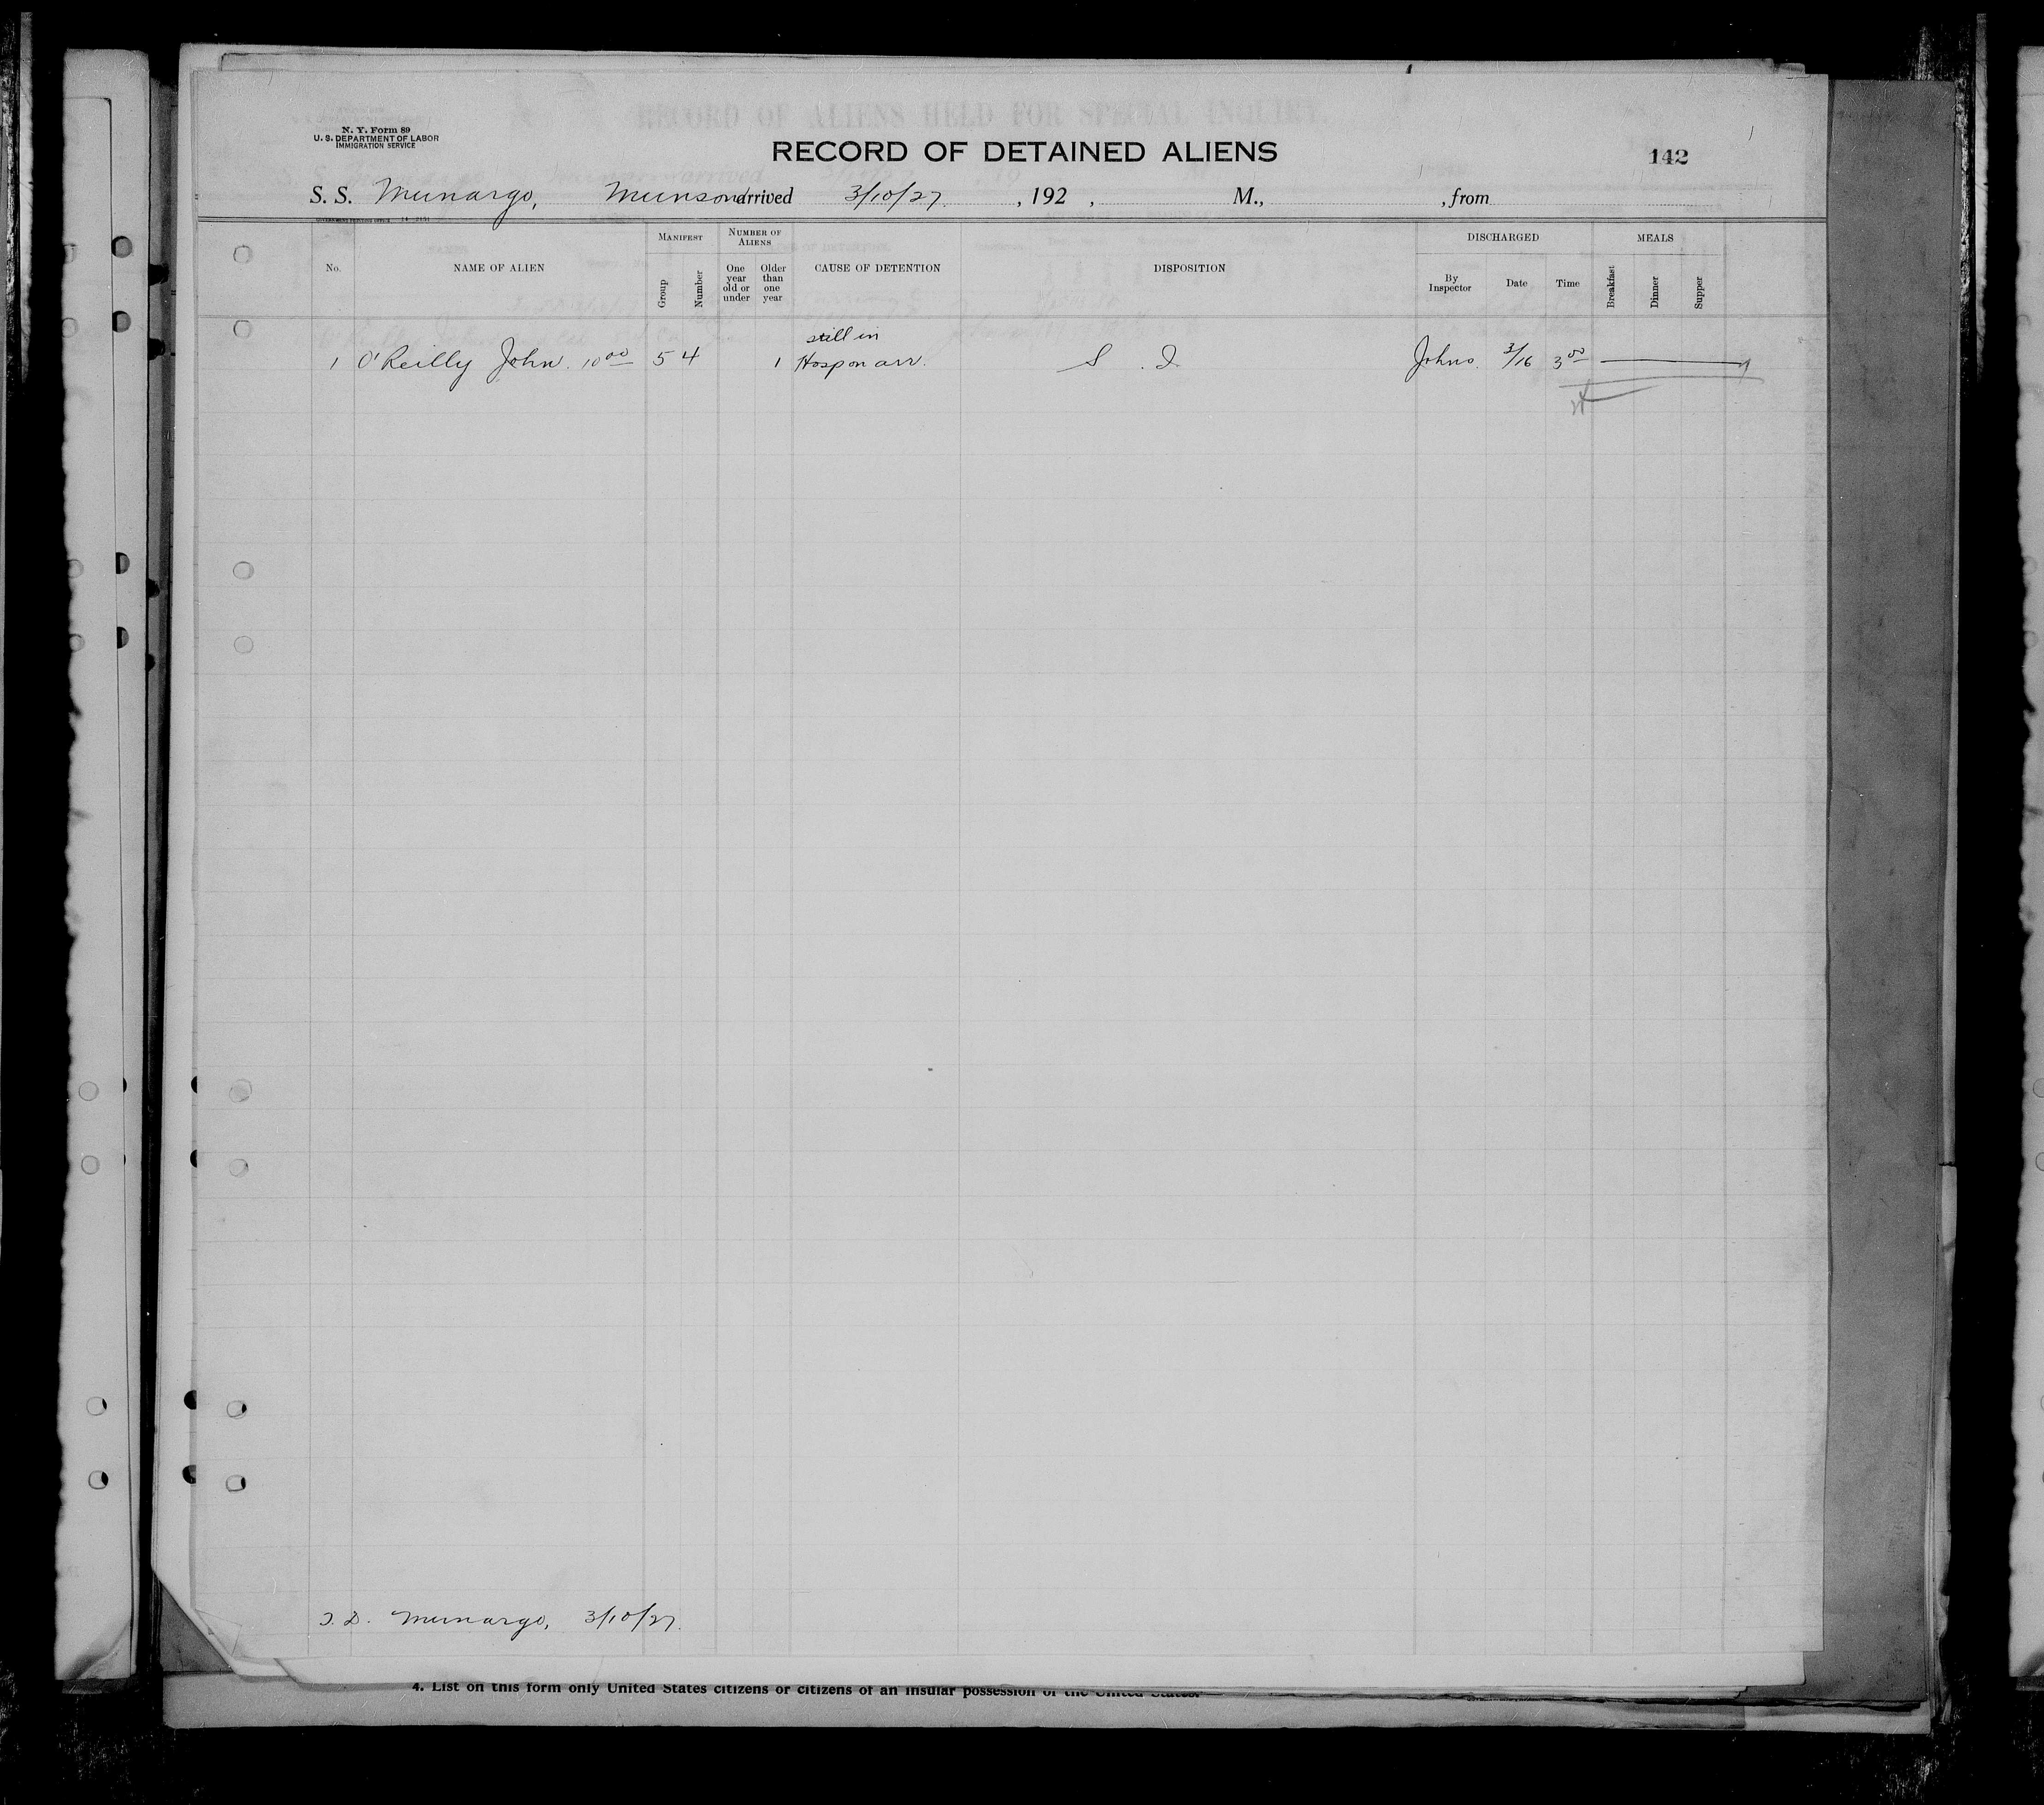 RECORD OF ALIENS HELD FOR SPECIAL INQUIRY.
N. Y. Form 89
U. S. DEPARTMENT OF LABOR
IMMIGRATION SERVICE
RECORD OF DETAINED ALIENS
142
S. S. Munargo, Munson arrived 3/10/27. , 192 , M., , from
MANIFEST
NUMBER OF ALIENS
DISCHARGED
MEALS
No.
NAME OF ALIEN
Group
Number
One year old or under
Older than one year
CAUSE OF DETENTION
DISPOSITION
By Inspector
Date
Time
Breakfast
Dinner
Supper
still in
1 O'Reilly John. 10 00 5 4 1 Hosp on arr. S . I. Johns. 3/16 3 00
Munargo, 3/10/27.
4. List on this form only United States citizens or citizens of an insular possession of the United States.